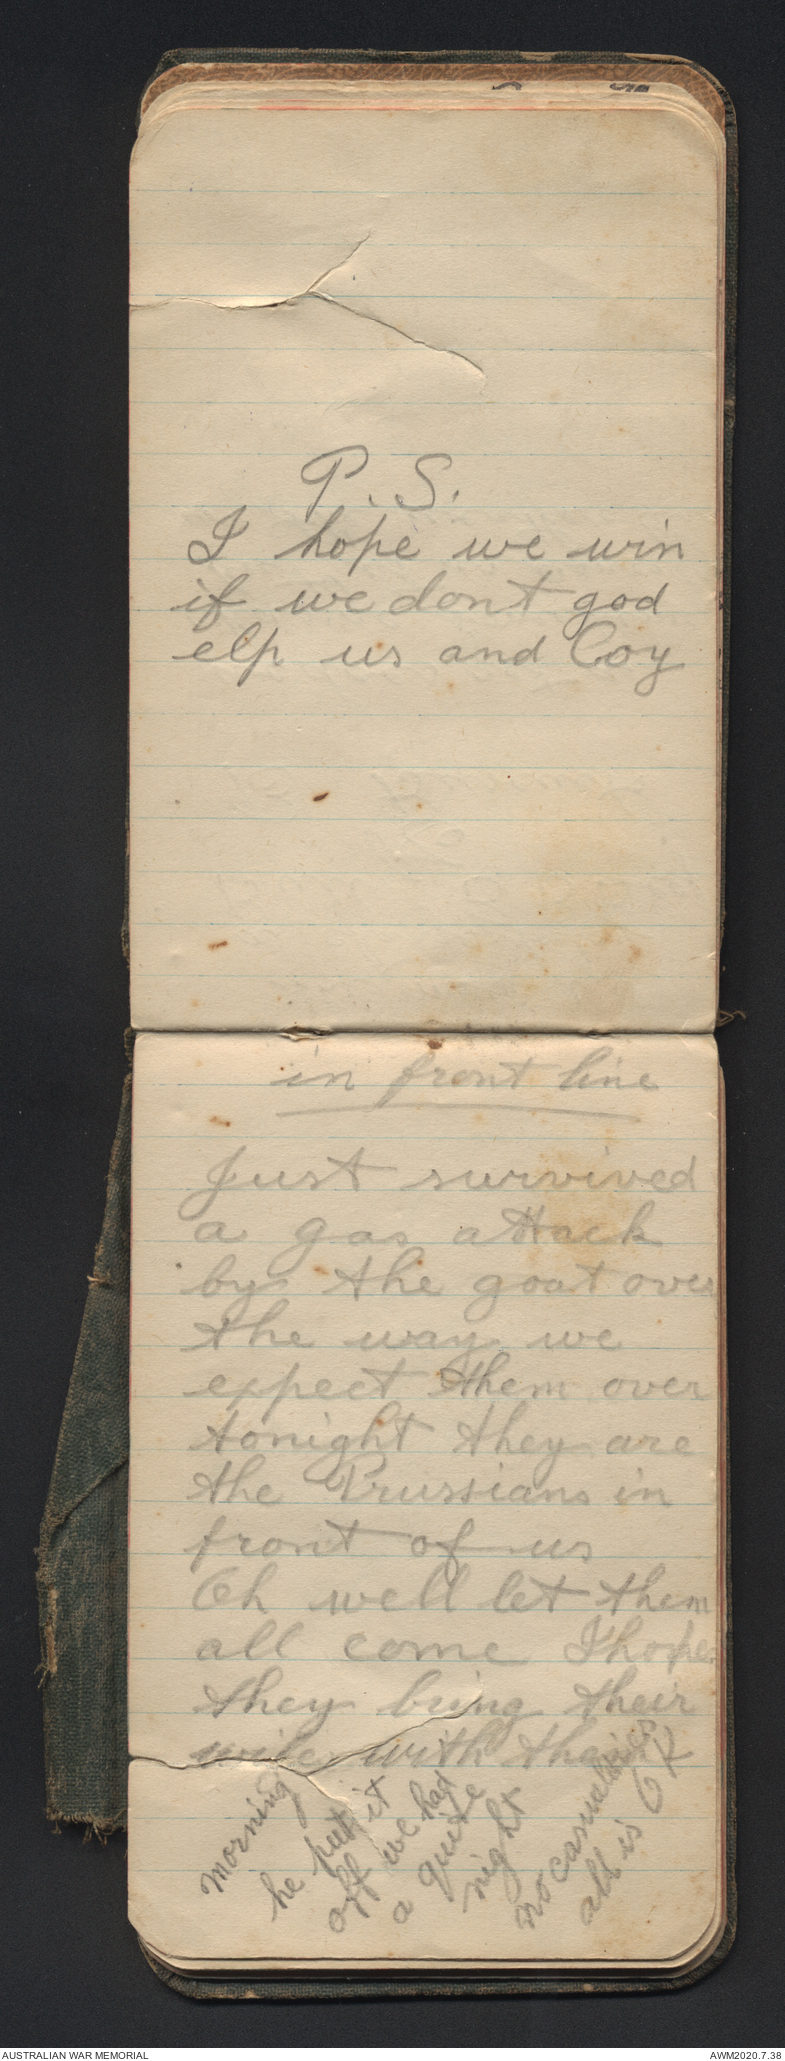 P.S.
I hope we win
if we dont god
elp us and Coy
in front line
Just survived
a gas attack
by the goat over
the way we
expect them over
tonight they are
the Prussians in
front of us
Oh well let them
all come I hope
they bring their
wife with them
morning
he put it
off we had
a quite
night
no casualties
all is OK
AUSTRALIAN WAR MEMORIAL
AWM2020.7.38